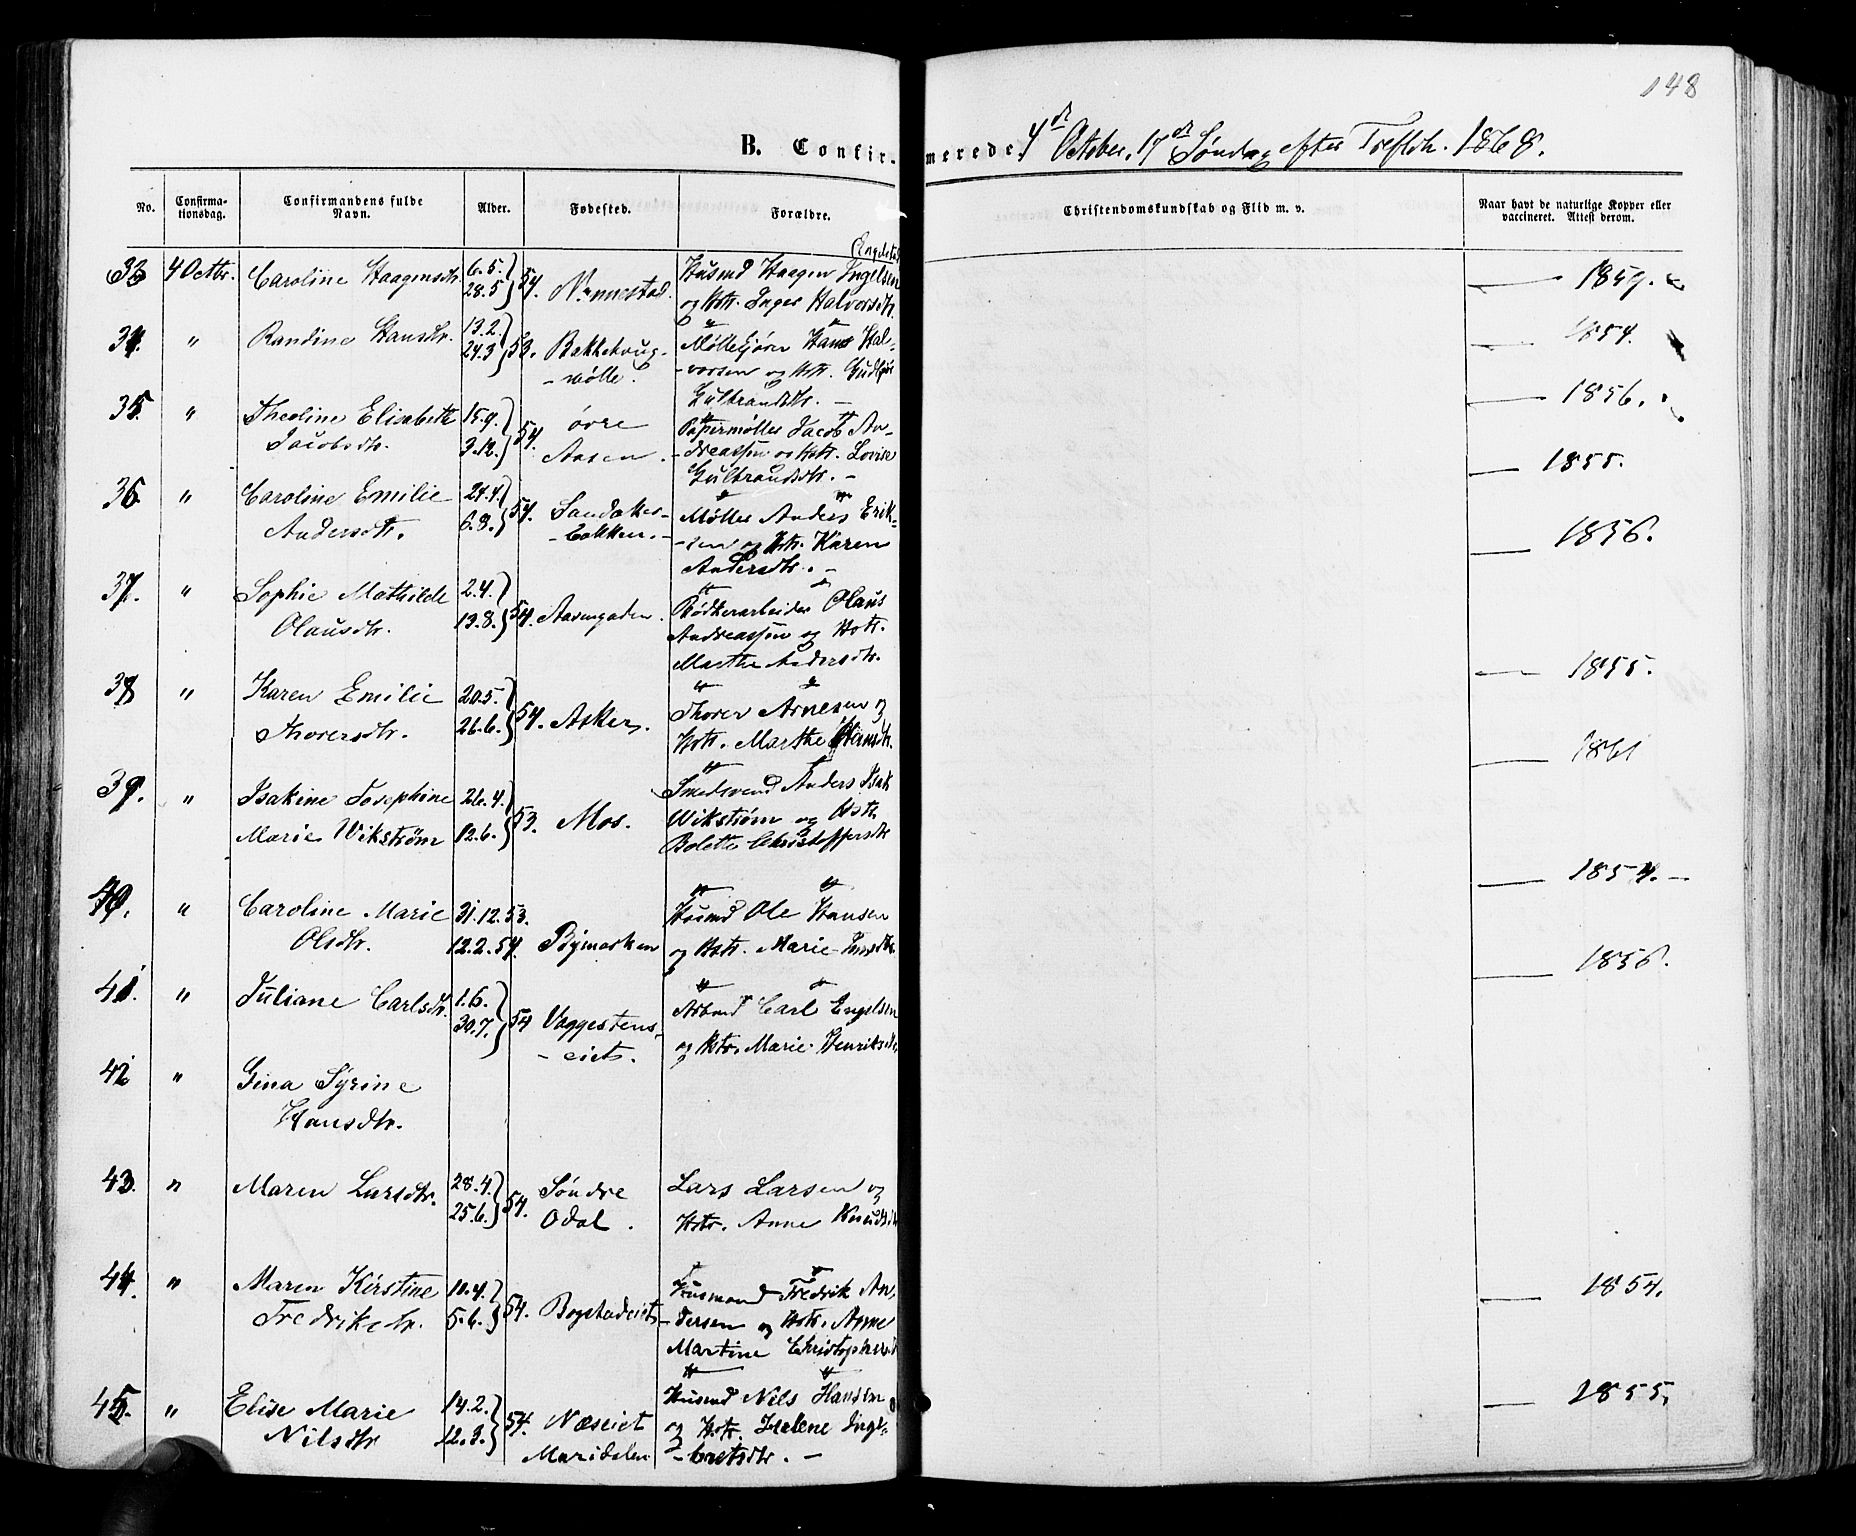 148
B. Confirmerede. 4de October, 17de Søndag efter Trefldh. 1868.
No. Confirmationsdag. Confirmandens fulde Navn. Alder. Fødested. Forældre. Christendomskundskab og Flid m. v. Naar havt de naturlige Kopper eller vaccineret. Attest derom.
33 4 Octbr. Caroline Haagensdtr. 6.5. 28.5 54. Husmd Haagen Ingelsen
og Hstr. Inger Halvorsdtr.
34. " Randine Hansdtr. 13.2. 24.3 53. Møllekjører Hans Hal-
-mølle. -vorsen og Hstr.
Gulbrandsdtr. —
35. " Theoline Elisabeth 15.9. 3.12. 54. øvre Papermøller Jacob An-
Jacobsdtr. Aasen. -dreassen og Hstr. Lovise
Gulbrandsdtr. —
36. " Caroline Emilie 24.4. 6.8. 54. Sandaker- Møller Anders Erik-
Andersdtr. -bakken. -sen og Hstr. Karen
Andersdtr. —
37. " Sophie Mathilde 2.4. 13.8. 54. Aasengaden. Bødkerarbeider Olaus
Olausdtr. Andreassen og Hstr.
Marthe Andersdtr.
38 " Karen Emilie 20.5. 26.6. 54. Asker. Thorer Arnesen og
Thorersdtr. Hstr. Marthe
39. " Isakine Josephine 26.4. 12.6. 53. Mos. Smedsvend Anders Isak
Marie Wikstrøm Wikstrøm og Hstr.
Bolette Christoffersdtr
40. " Caroline Marie 31.12.53. Husmd Ole Hansen
Olsdtr. 12.2.54. Bymarken og Hstr. Marie
41. " Juliane Carlsdtr. 1.6. 30.7. 54 Vaggestens- Arbmd Carl Engelsen
-eiet. og Hstr. Marie Henriksdtr.
42 " Gina Syrine
Hansdtr.
43. " Maren Larsdtr. 28.4. 25.6. 54. Søndre Lars Larsen og
Odal. Hstr. Anne
44. " Maren Kirstine 10.4. 5.6. 54. Bogstadeiet Husmand Fredrik An-
Fredriksdtr. -dersen og Hstr. Anne
Martine
45. " Elise Marie 14.2. 12.3. 54. Næseiet Husmd Nils Hansen
Nilsdtr Maridalen og Hstr. Helene Inge-
-bretsdtr. —
1854.
1856.
1855.
1856.
1855.
1861
1854. —
1856.
1854.
1855.